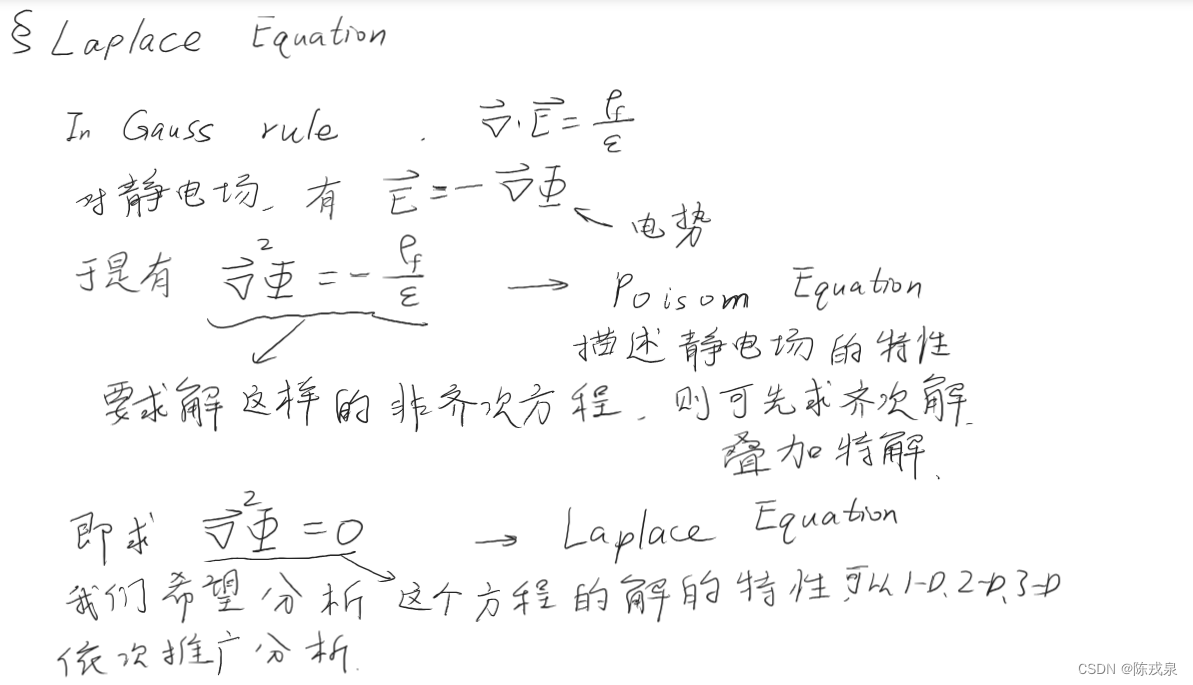 § Laplace Equation
In Gauss rule. ∇⃗·E⃗ = ρf/ε
对静电场, 有 E⃗ = -∇⃗Φ
电势
于是有 ∇⃗²Φ = -ρf/ε → Poisom Equation
描述静电场的特性
要求解这样的非齐次方程, 则可先求齐次解,
叠加特解,
即求 ∇⃗²Φ = 0 → Laplace Equation
我们希望分析这个方程的解的特性,可以1-D,2-D,3-D
依次推广分析.
CSDN @陈戎泉